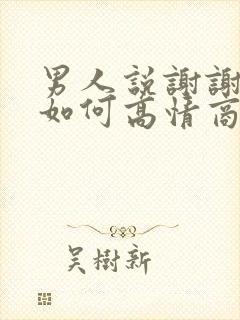 男人説謝謝
如何高情商
吴樹新